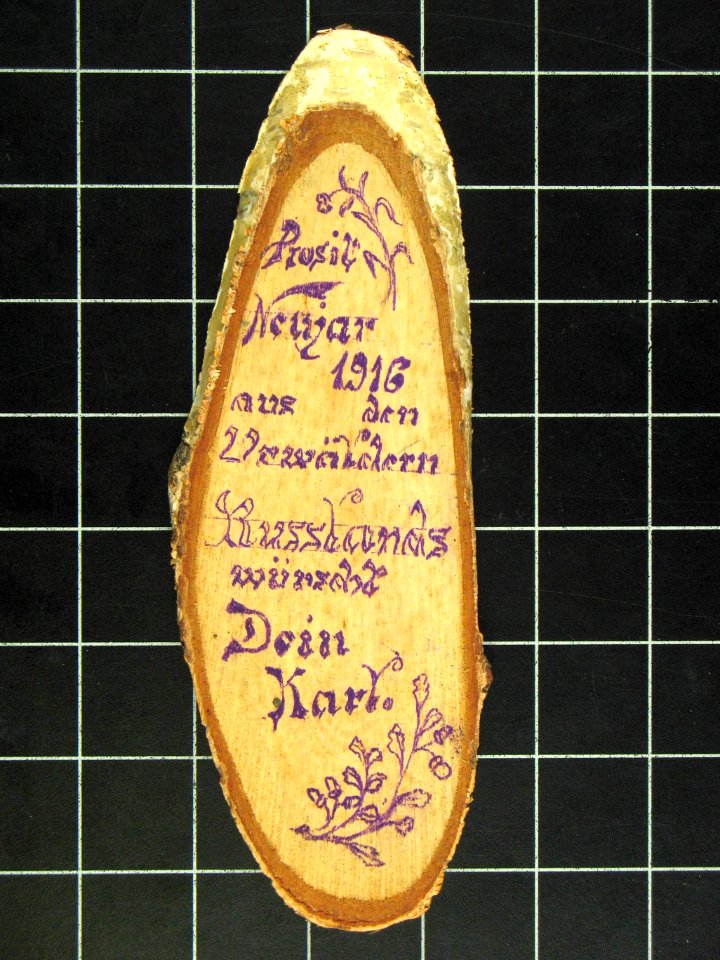 Prosit
Neujar
1916
aus den
Urwäldern
Russlands
wünscht
Dein
Karl.